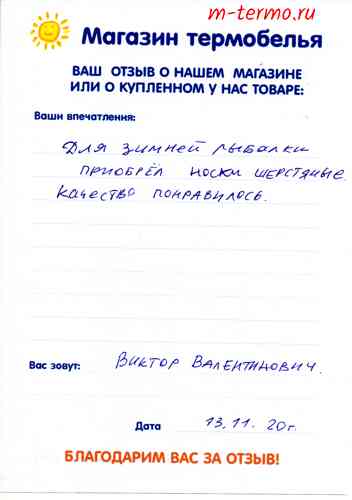 m-termo.ru
Магазин термобелья
ВАШ ОТЗЫВ О НАШЕМ МАГАЗИНЕ
ИЛИ О КУПЛЕННОМ У НАС ТОВАРЕ:
Ваши впечатления:
Для зимней рыбалки
приобрёл носки шерстяные.
Качество понравилось.
Вас зовут: Виктор Валентинович.
Дата 13.11.20г.
БЛАГОДАРИМ ВАС ЗА ОТЗЫВ!